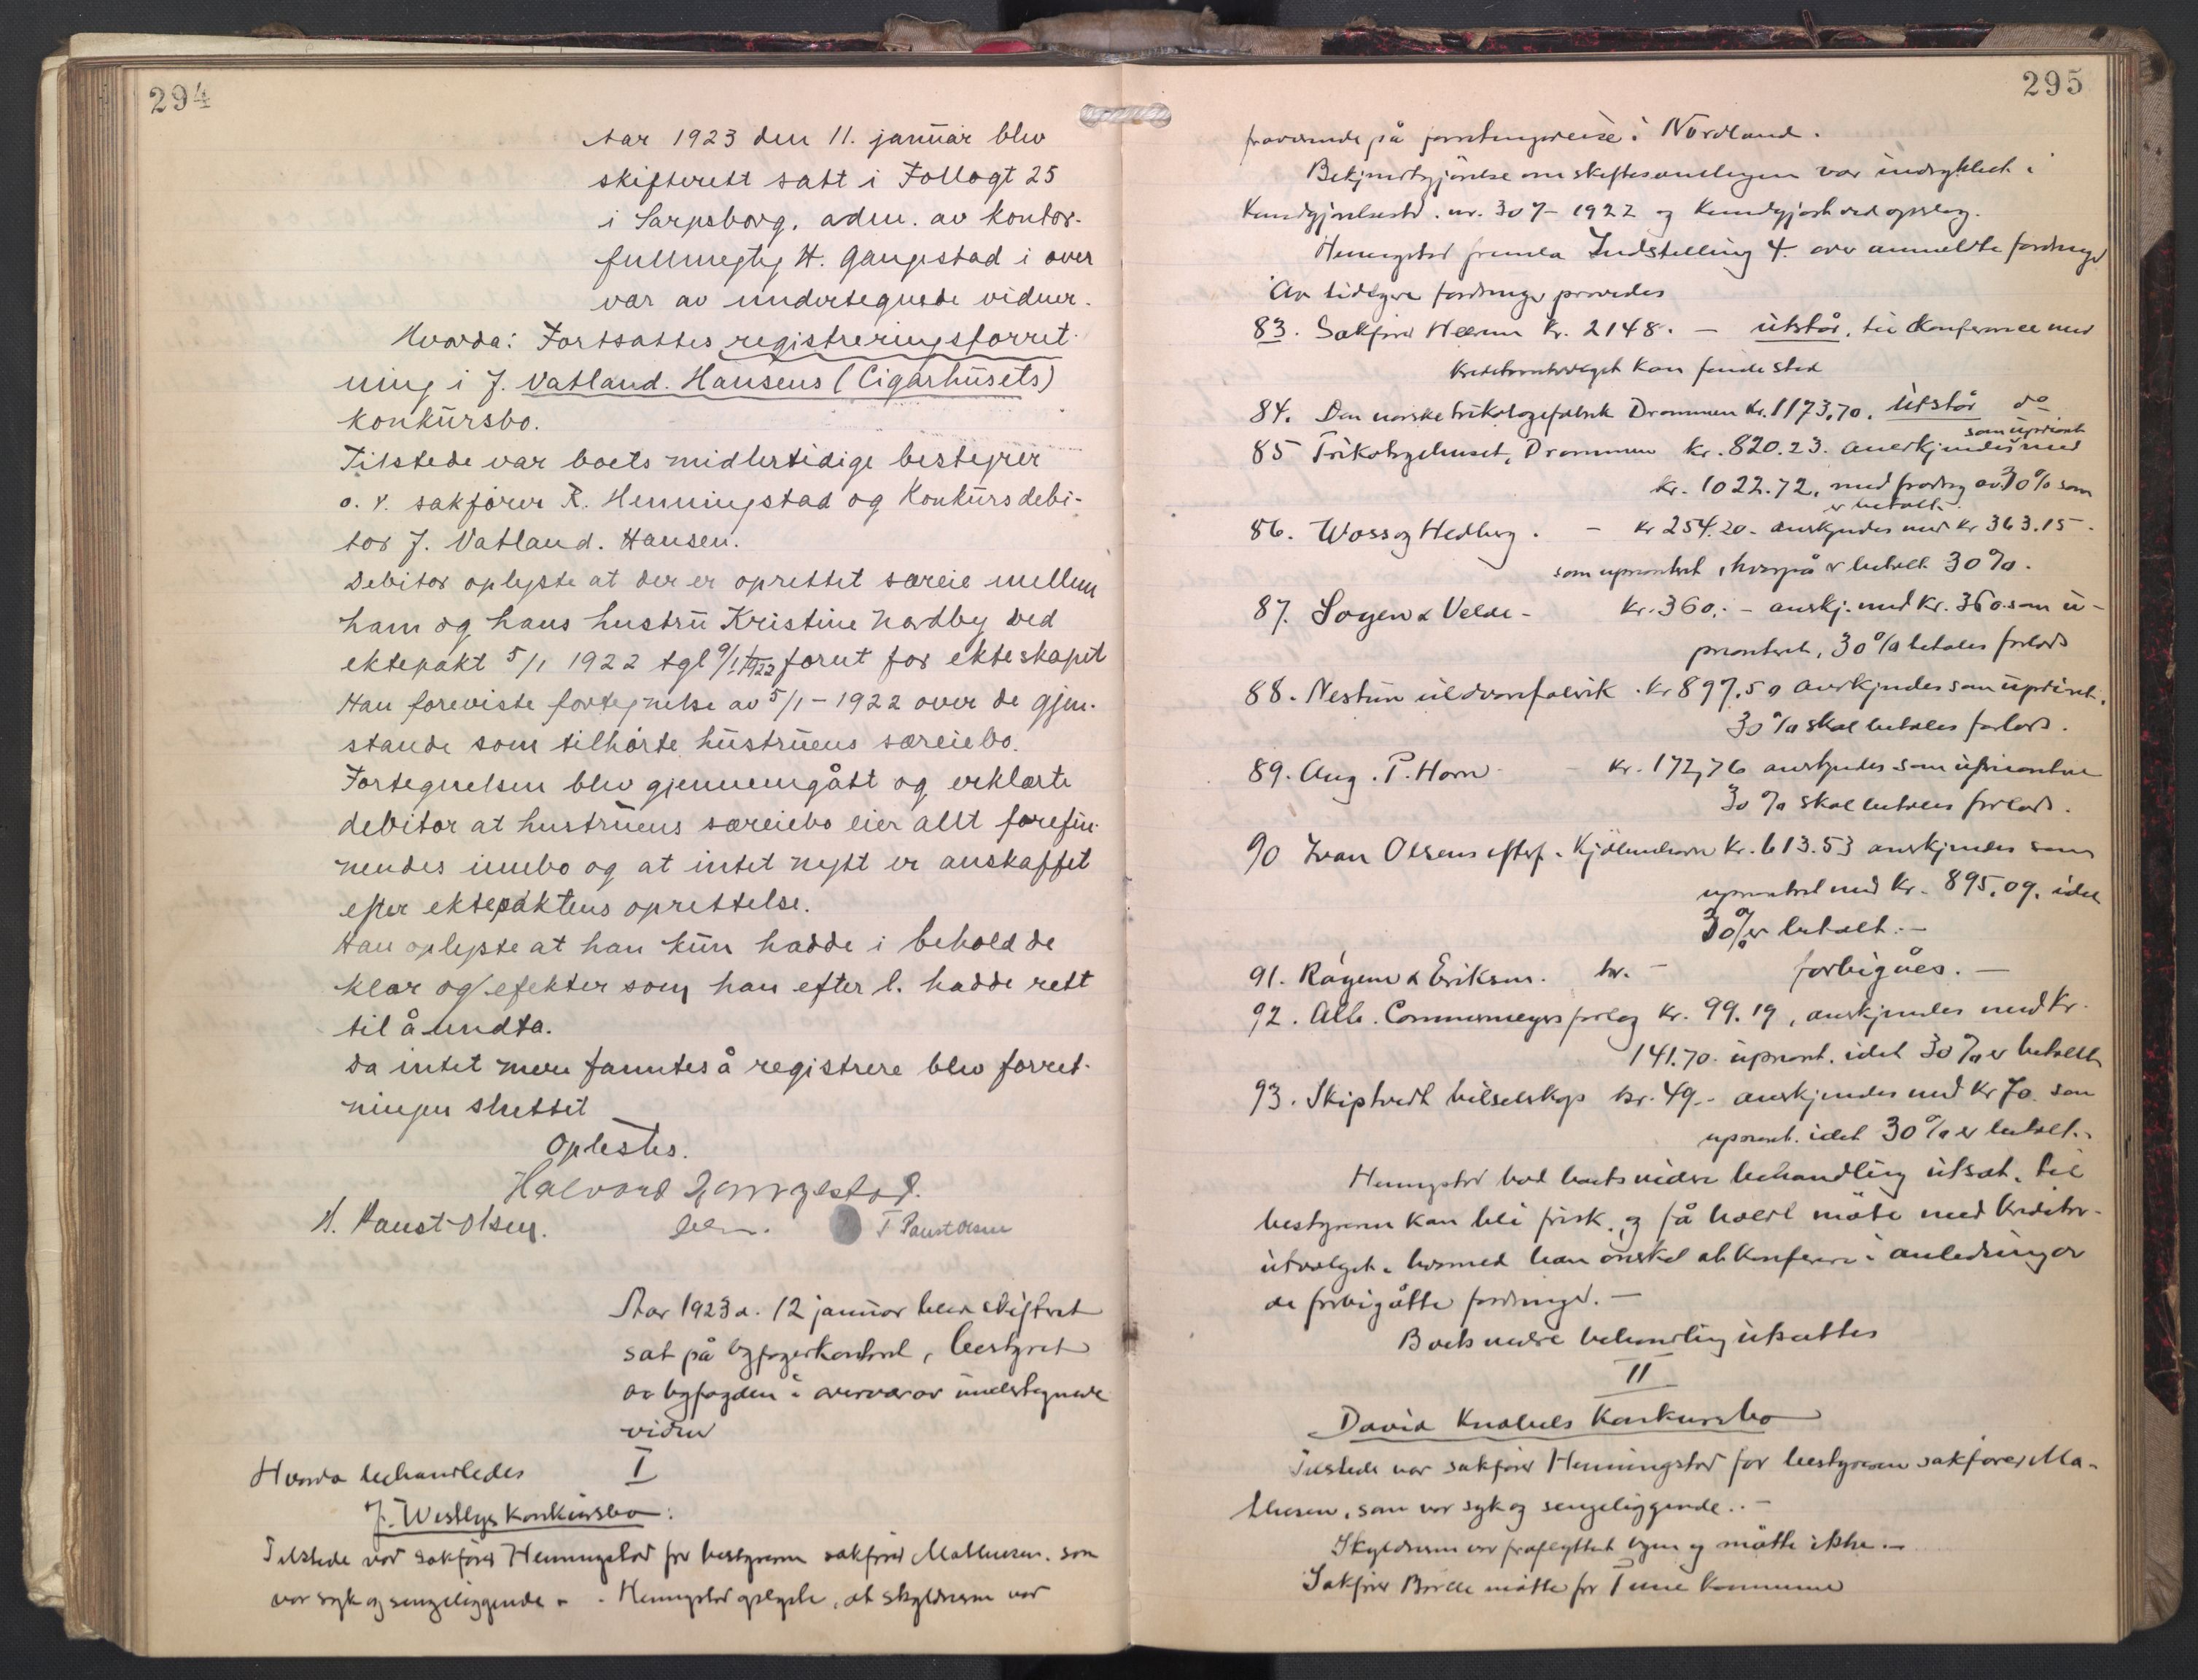 294
Aar 1923 den 11. januar blev
skifterett satt i Follogt 25
i Sarpsborg, adm. av kontor-
fullmegtig H. Gangestad i over
vær av undertegnede vidner.
Hvorda: Fortsattes registreringsforret-
ning i J. Vatland. Hansens (Cigarhusets)
konkursbo.
Tilstede var boets midlertidige bestyrer
o. r. sakfører R. Henningstad og Konkursdebi-
tor J. Vatland. Hansen.
Debitor oplyste at der er oprettet særeie mellem
ham og hans hustru Kristine Nordby ved
ektepakt 5/1 1922 tgl 9/1 1922 forut for ekteskapet
Han foreviste fortegnelse av 5/1-1922 over de gjen-
stande som tilhørte hustruens særeiebo.
Fortegnelsen blev gjennemgått og erklærte
debitor at hustruens særeiebo eier allt forefin-
nendes innbo og at intet nytt er anskaffet
efter ektepaktens oprettelse.
Han oplyste at han kun hadde i behold de
klær og efekter som han efter l. hadde rett
til å undta.
Da intet mere fanntes å registrere blev forret-
ningen sluttet
Oplestes.
Halvord Gangestad.
H. Paust-Olsen. T Paust Olsen
Aar 1923 d. 12 januar blev skifteret
sat på byfogerkontoret, bestyret
av byfogden i overvær av undertegnede
vidner
Hvorda behandledes I
J. Westlys Konkursbo:
Tilstede var sakfører Henningstad for bestyreren sakfører Mathiesen. som
var syk og sengeliggende - . Henningstad oplyste, at skyldneren var
295
fraværende på forretningsreise i Nordland.
Bekjendtgjörelse om skiftesamlingen var indrykket i
Kundgjörelsestd. nr. 307- 1922 og kundgjort ved opslag.
Henningstad fremla Indstelling 4. over anmeldte fordringer
Av tidligere fordringer prøvedes
83. Sakfører Heerum Kr. 2148. - utstår, til Konferense med
Kreditorutvalget kan finde sted
84. Den norske trikotagefabrik Drammen kr. 1173,70. Utstår do
85 Trikotagehuset, Drammen kr. 820.23. anerkjendes som uprioret med
kr. 1022.72, med fradrag av 30% som
er betalt.
86. Woss og Hedberg. - kr 254.20 - anerkjendes med kr 363.15-.
som uprioritert, hvorpå er betalt 30%.
87. Soyen & Velde - kr. 360.- anerkj. med kr. 360. som u-
prioritert, 30% betales forlods
88. Nestun uldvarefabrik. kr 897.50 anerkjendes som upriort.
30% skal betales forlods.
89. Aug. P. Horn - kr. 172,76 anerkjendes som uprioritert
30% skal betales forlods.
90 Ivan Olsens efterf. Kjöbenhavn kr. 613.53 anerkjendes som
uprioritert med kr. 895,09. idet
30% er betalt.-
91. Ragem & Eriksen. kr. - forbigåes. -
92. Alb. Commermeyers forlag kr. 99.19, anerkjendes med kr.
141.70. upriort. idet 30% er betalt
93. Skiptvedt bilselskap kr. 49.- anerkjendes med kr 70. som
upriort. idet 30% er betalt.
Henningstad bad boets videre behandling utsat, til
bestyreren kan bli frisk, og få holdt möte med Kreditor-
utvalget. hvormed han önsket at konferere i anledning av
de forbigåtte fordringer. -
Boets videre behandling utsattes
II
David Knabels Konkursbo
Tilstede var sakfører Henningstad for bestyreren sakfører Ma-
thiesen, som var syk og sengeliggende. -
Skyldneren var fraflyttet byen og mötte ikke. -
Sakfører Börde mötte for Tune kommune